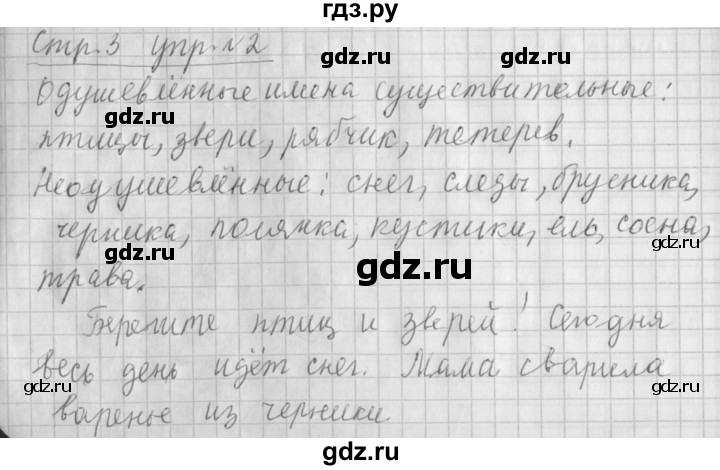 гдз.ру
Стр. 3 упр. №2
gdz.ru gdz.ru
Одушевлённые имена существительные:
птицы, звери, рябчик, тетерев.
gdz.ru gdz.ru
Неодушевлённые: снег, следы, брусника,
черника, полянка, кустики, ель, сосна,
gdz.ru
gdz.ru
трава.
gdz.ru
Берегите птиц и зверей! Сегодня
gdz.ru gdz.ru
весь день идёт снег. Мама сварила
варенье из черники
gdz.ru gdz.ru
гдз.ру